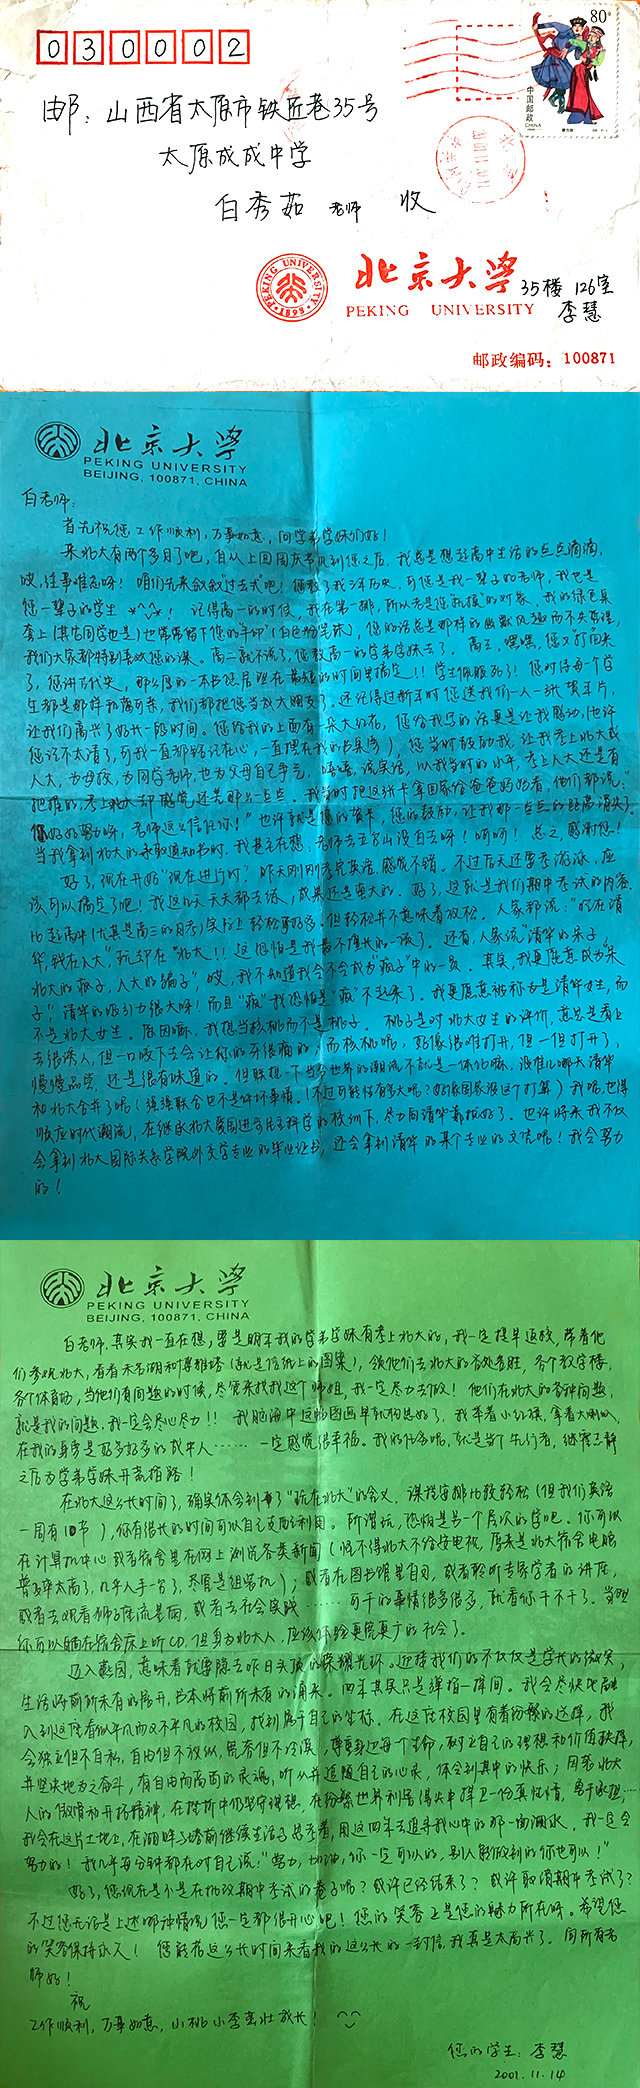 030002
80分
中国邮政
CHINA
邮：山西省太原市铁匠巷35号
太原成成中学
白秀茹 老师 收
PEKING UNIVERSITY 1898
北京大学 35楼 126室
PEKING UNIVERSITY 李慧
邮政编码：100871
北京大学
PEKING UNIVERSITY
BEIJING, 100871, CHINA
白老师：
首先祝您工作顺利，万事如意，问学弟学妹们好！
来北大有两个多月了吧，自从上回国庆节见到您之后，我总是想起高中生活的点点滴滴，
哎，往事难忘呀！咱们先来叙叙"过去式"吧！您教了我三年历史，可您是我一辈子的老师，我也是
您一辈子的学生 *^_^*！记得高一的时候，我在第一排，所以老是您"抚摸"的对象，我的绿色桌
套上（其它同学也是）也常常留下您的"手印"（白色粉笔灰），您的话总是那样的幽默风趣而不失哲理，
我们大家都特别喜欢您的课。高二就不说了，您教高一的学弟学妹去了。高三，嘿嘿，您又"打"回来
了，您讲古代史，那么厚的一本书愣是现在最短的时间里搞定！！学生佩服死了！您对待每个学
生都是那样和蔼可亲，我们都把您当成大朋友了，还记得过新年时您送我们一人一张贺年片，
让我们高兴了好长一段时间。您给我的上面有一朵大红花，您给我写的话更是让我感动，（也许
您记不太清了，可我一直都铭记在心，一直摆在我的书桌旁），您当时鼓励我，让我考上北大或
人大，为母校，为同学老师，也为父母自己争光，嘻嘻，说实话，以我当时的水平，考上人大还是有
把握的，考上北大却感觉还差那么一点点。我当时把这张卡拿回家给爸爸妈妈看，他们都说："
你好好努力呀，老师这么信任你！"也许就是您的贺卡，您的鼓励，让我那一点点的距离消失了。
当我拿到北大的录取通知书时，我甚至在想，老师去五台山没白去呀！呵呵！总之，感谢您！
好了，现在开始"现在进行时"！昨天刚刚考完英语，感觉不错。不过后天还要考游泳，应
该可以搞定了吧！我这几天天天都去练，成果还是蛮大的。好了，这就是我们期中考试的内容，
比起高中（尤其是高三的月考）实际上轻松得多，但轻松并不意味着放松。人家都说："吃在清
华，钱在人大"，玩却在"北大！！这恐怕是我最不擅长的一项了。还有，人家说"清华的呆子，
北大的疯子，人大的骗子"，哎，我不知道我会不会成为"疯子"中的一员。其实，我更愿意成为"呆
子"，清华的吸引力很大呀！而且"疯"我恐怕是"疯"不起来了。我更愿意被称为是清华女生，而
不是北大女生。原因嘛，我想当核桃而不是桃子。桃子是对北大女生的评价，意思是看上
去很诱人，但一口咬下去会让你的牙很痛的，而核桃呢，好像很难打开，但一但打开了，
慢慢品尝，还是很有味道的。但联想一下当今世界的潮流不就是一体化嘛，没准儿哪天清华
和北大合并了呢（强强联合也不是件坏事情。（不过可能性有多大呢？好像国家没这个打算）我呢，也得
顺应时代潮流，在继承北大爱国进步民主科学的校训下，尽力向清华靠拢好了。也许将来我不仅
会拿到北大国际关系学院外交学专业的毕业证书，还会拿到清华的某个专业的文凭呢！我会努力
的！
北京大学
PEKING UNIVERSITY
BEIJING, 100871, CHINA
白老师，其实我一直在想，要是明年我的学弟学妹有考上北大的，我一定提早返校，带着他
们参观北大，看看未名湖和博雅塔（就是信纸上的图案），领他们去北大的各处名胜，各个教学楼，
各个体育场，当他们有问题的时候，尽管来找我这个师姐，我一定尽力去做！他们在北大的各种问题，
就是我的问题，我一定会尽心尽力！！我脑海中这幅图画早就构思好了，我举着小红旗，拿着大喇叭，
在我的身旁是好多好多的成中人……一定感觉很幸福。我的任务呢，就是当个先行者，继霍志静
之后为学弟学妹开荒指路！
在北大这么长时间了，确实体会到了"玩在北大"的含义，课程安排比较轻松（但我们英语
一周有10节），你有很长的时间可以自己支配利用。所谓玩，恐怕是另一个层次的学吧。你可以
在计算机中心或者宿舍里在网上浏览各类新闻（怪不得北大不给接电视，原来是北大宿舍电脑
普及率太高了，几乎人手一台了，尽管是组装机）；或者在图书馆里自习，或者聆听专家学者的讲座，
或者去观看狮子座流星雨，或者去社会实践……可干的事情很多很多，就看你干不干了。当然
你可以躺在宿舍床上听CD，但身为北大人，应该体验更宽更广的社会了。
迈入燕园，意味着就要隐去昨日头顶的荣耀光环。迎接我们的不仅仅是学长的微笑，
生活将前所未有的展开，书本将前所未有的涌来。四年其实只是弹指一挥间。我会尽快地融
入到这座看似平凡而又不平凡的校园，找到属于自己的坐标。在这座校园里有着纷繁的选择，我
会独立但不自私，自由但不放纵，思考但不冷漠，尊重身边每个生命，树立自己的理想和价值抉择，
并坚决地为之奋斗，有自由而高尚的灵魂，听从并追随自己的心灵，体会到其中的快乐；因着北大
人的激情和开拓精神，在挫折中仍坚守理想，在纷繁世界利害得失中捍卫一份真性情，勇于承担；……
我会在这片土地上，在湖畔与塔前继续生活与思考着，用这四年去追寻我心中的那一面湖水，我一定会
努力的！我几乎每分钟都在对自己说："努力，加油，你一定可以的，别人能做到的你也可以！"
好了，您现在是不是在批改期中考试的卷子呢？或许已经结束了？或许取消期中考试了？
不过您无论是上述哪种情况，您一定都很开心吧！您的笑容正是您的魅力所在呀。希望您
的笑容保持永久！您能花这么长时间来看我的这么长的一封信，我真是太高兴了。问所有老
师好！
祝
工作顺利，万事如意，小桃小李茁壮成长！
您的学生：李慧
2001.11.14